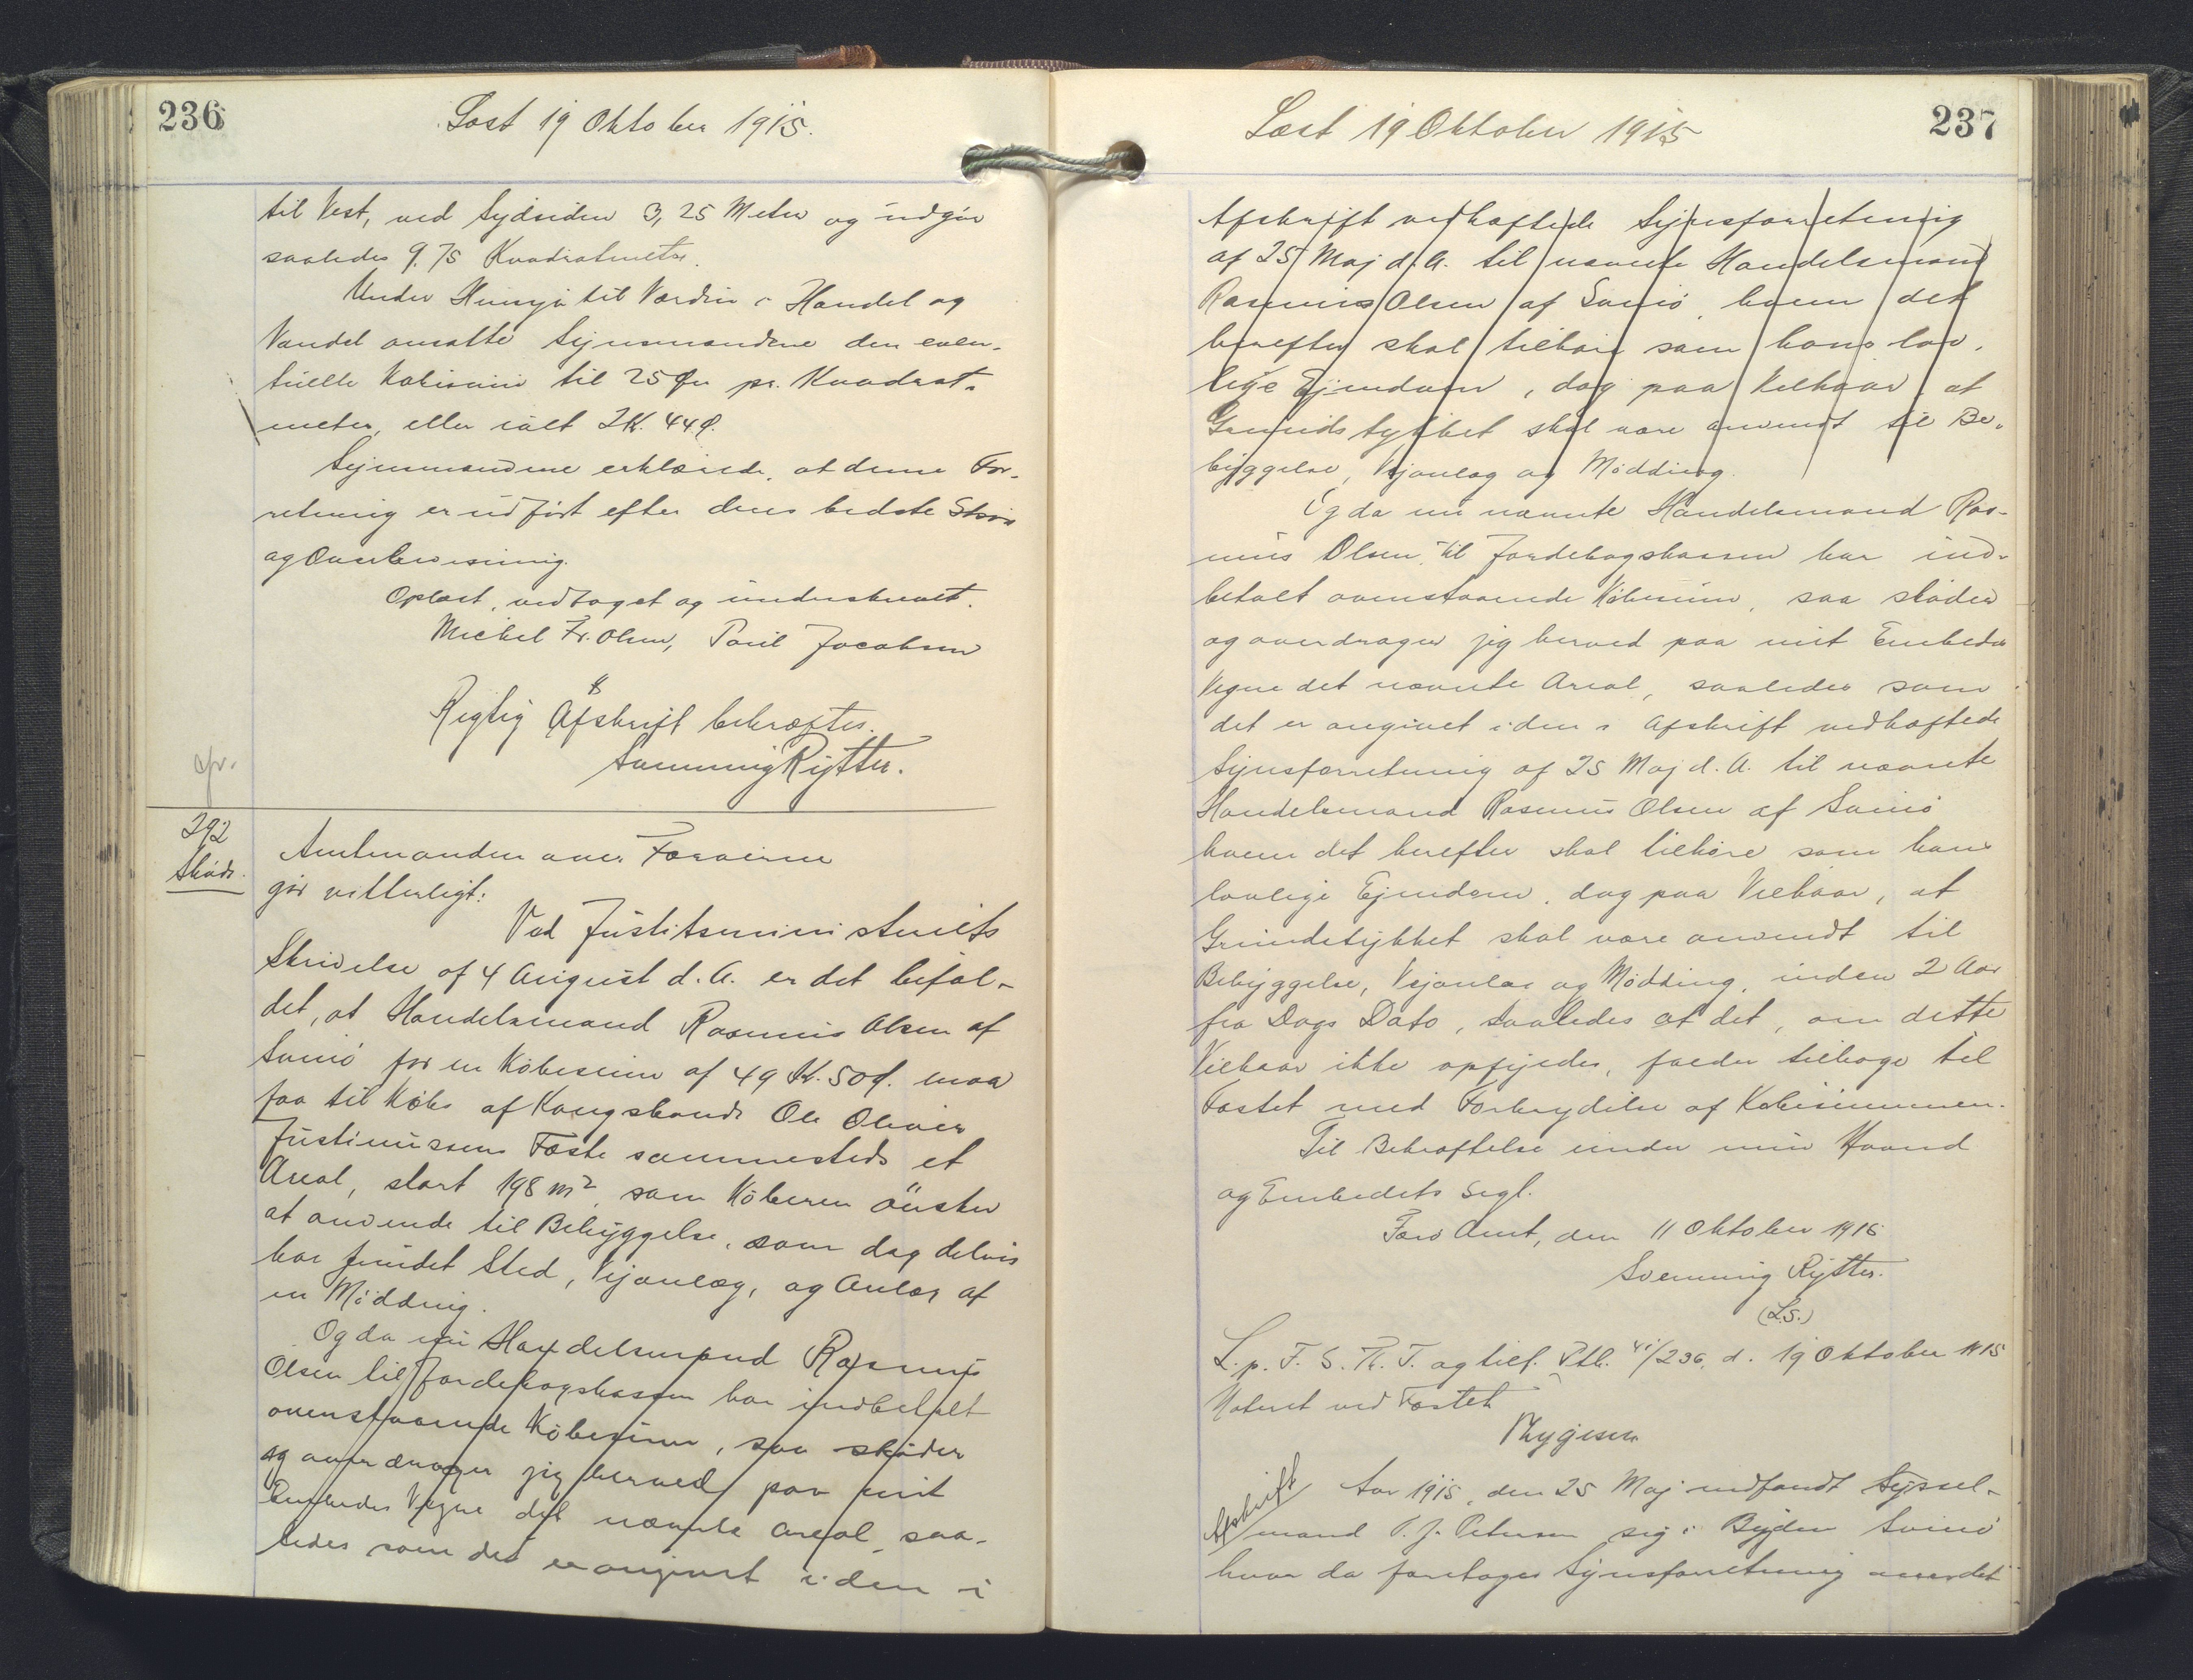 236
Læst 19 Oktober 1915.
til Vest, ved Sydsiden 3,25 Meter og udgør
saaledes 9.75 Kvadratmeter.
Under Hensyn til Værdien i Handel og
Vandel ansatte Synsmændene den even-
tuelle Købesum til 25 Øre pr. Kvadrat-
meter, eller ialt 2 K. 44 Ø.
Synsmændene erklærede, at denne For-
retning er udført efter deres bedste Skøn
og Overbevisning.
Oplæst, vedtaget og underskrevet.
Michel Fr. Olsen, Poul Jacobsen
Rigtig Afskrift bekræftes.
Svenning Rytter.
cfr.
292
Skøde.
Amtmanden over Færøerne
gør vitterligt:
Ved Justitsministeriets
Skrivelse af 4 August d. A. er det befal-
det, at Handelsmand Rasmus Olsen af
Svinø for en Købesum af 49 K. 50 Ø. maa
faa til Købs af Kongsbonde Ole Olivir
Justinussens Fæste sammesteds et
Areal, stort 198 m², som Køberen ønsker
at anvende til Bebyggelse, som dog delvis
har fundet Sted, Vejanlæg, og Anlæg af
en Mødding.
Og da nu Handelsmand Rasmus
Olsen til Jordebogskassen har indbetalt
ovenstaaende Købesum, saa skøder
og overdrager jig herved paa mit
Embedes Vegne det nævnte Areal, saa-
ledes som det er angivet i den i
237
Læst 19 Oktober 1915
Afskrift vedhæftede Synsforretning
af 25 Maj d. A. til nævnte Handelsmand
Rasmus Olsen af Svinø, hvem det
herefter skal tilhøre som hans lov-
lige Ejendom, dog paa Vilkaar, at
Grundstykket skal være anvendt til Be-
byggelse, Vejanlæg og Mødding.
Og da nu nævnte Handelsmand Ras-
mus Olsen til Jordebogskassen har ind-
betalt ovenstaaende Købesum, saa skøder
og overdrager jig herved paa mit Embedes
Vegne det nævnte Areal, saaledes som
det er angivet i den i Afskrift vedhæftede
Synsforretning af 25 Maj d. A. til nævnte
Handelsmand Rasmus Olsen af Svinø
hvem det herefter skal tilhøre som hans
lovlige Ejendom, dog paa Vilkaar, at
Grundstykket skal være anvendt til
Bebyggelse, Vejanlæg og Mødding, inden 2 Aar
fra Dags Dato, saaledes at det, om dette
Vilkaar ikke opfyldes, falder tilbage til
Fæstet med Forbrydelse af Købesummen.
Til Bekræftelse under min Haand
og Embedets Segl.
Færø Amt, den 11 Oktober 1915
Svenning Rytter.
(L.S.)
L. p. F. S. R. T. og tilf. Ptb. 41/236. d. 19 Oktober 1915
Noteret ved Fæstet
Thygesen
Afskrift
Aar 1915, den 25 Maj indfandt Syssel-
mand P. J. Petersen sig i Bygden Svinø
hvor da foretoges Synsforretning